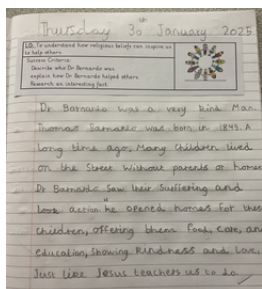 Thursday 30th January 2025
LO: To understand how religious beliefs can inspire us to help others
Success Criteria:
Describe who Dr Barnardo was
explain how Dr Barnardo helped others
Research an interesting fact.
Dr Barnardo was a very kind Man.
Thomas Barnardo was born in 1845. A
long time ago, Many Children lived
on the Street without parents or homes
Dr Barnardo Saw their Suffering and
took action he opened homes for these
children, offering them food, care, an
education, Showing Kindness and Love,
Just like Jesus teachers us to do.